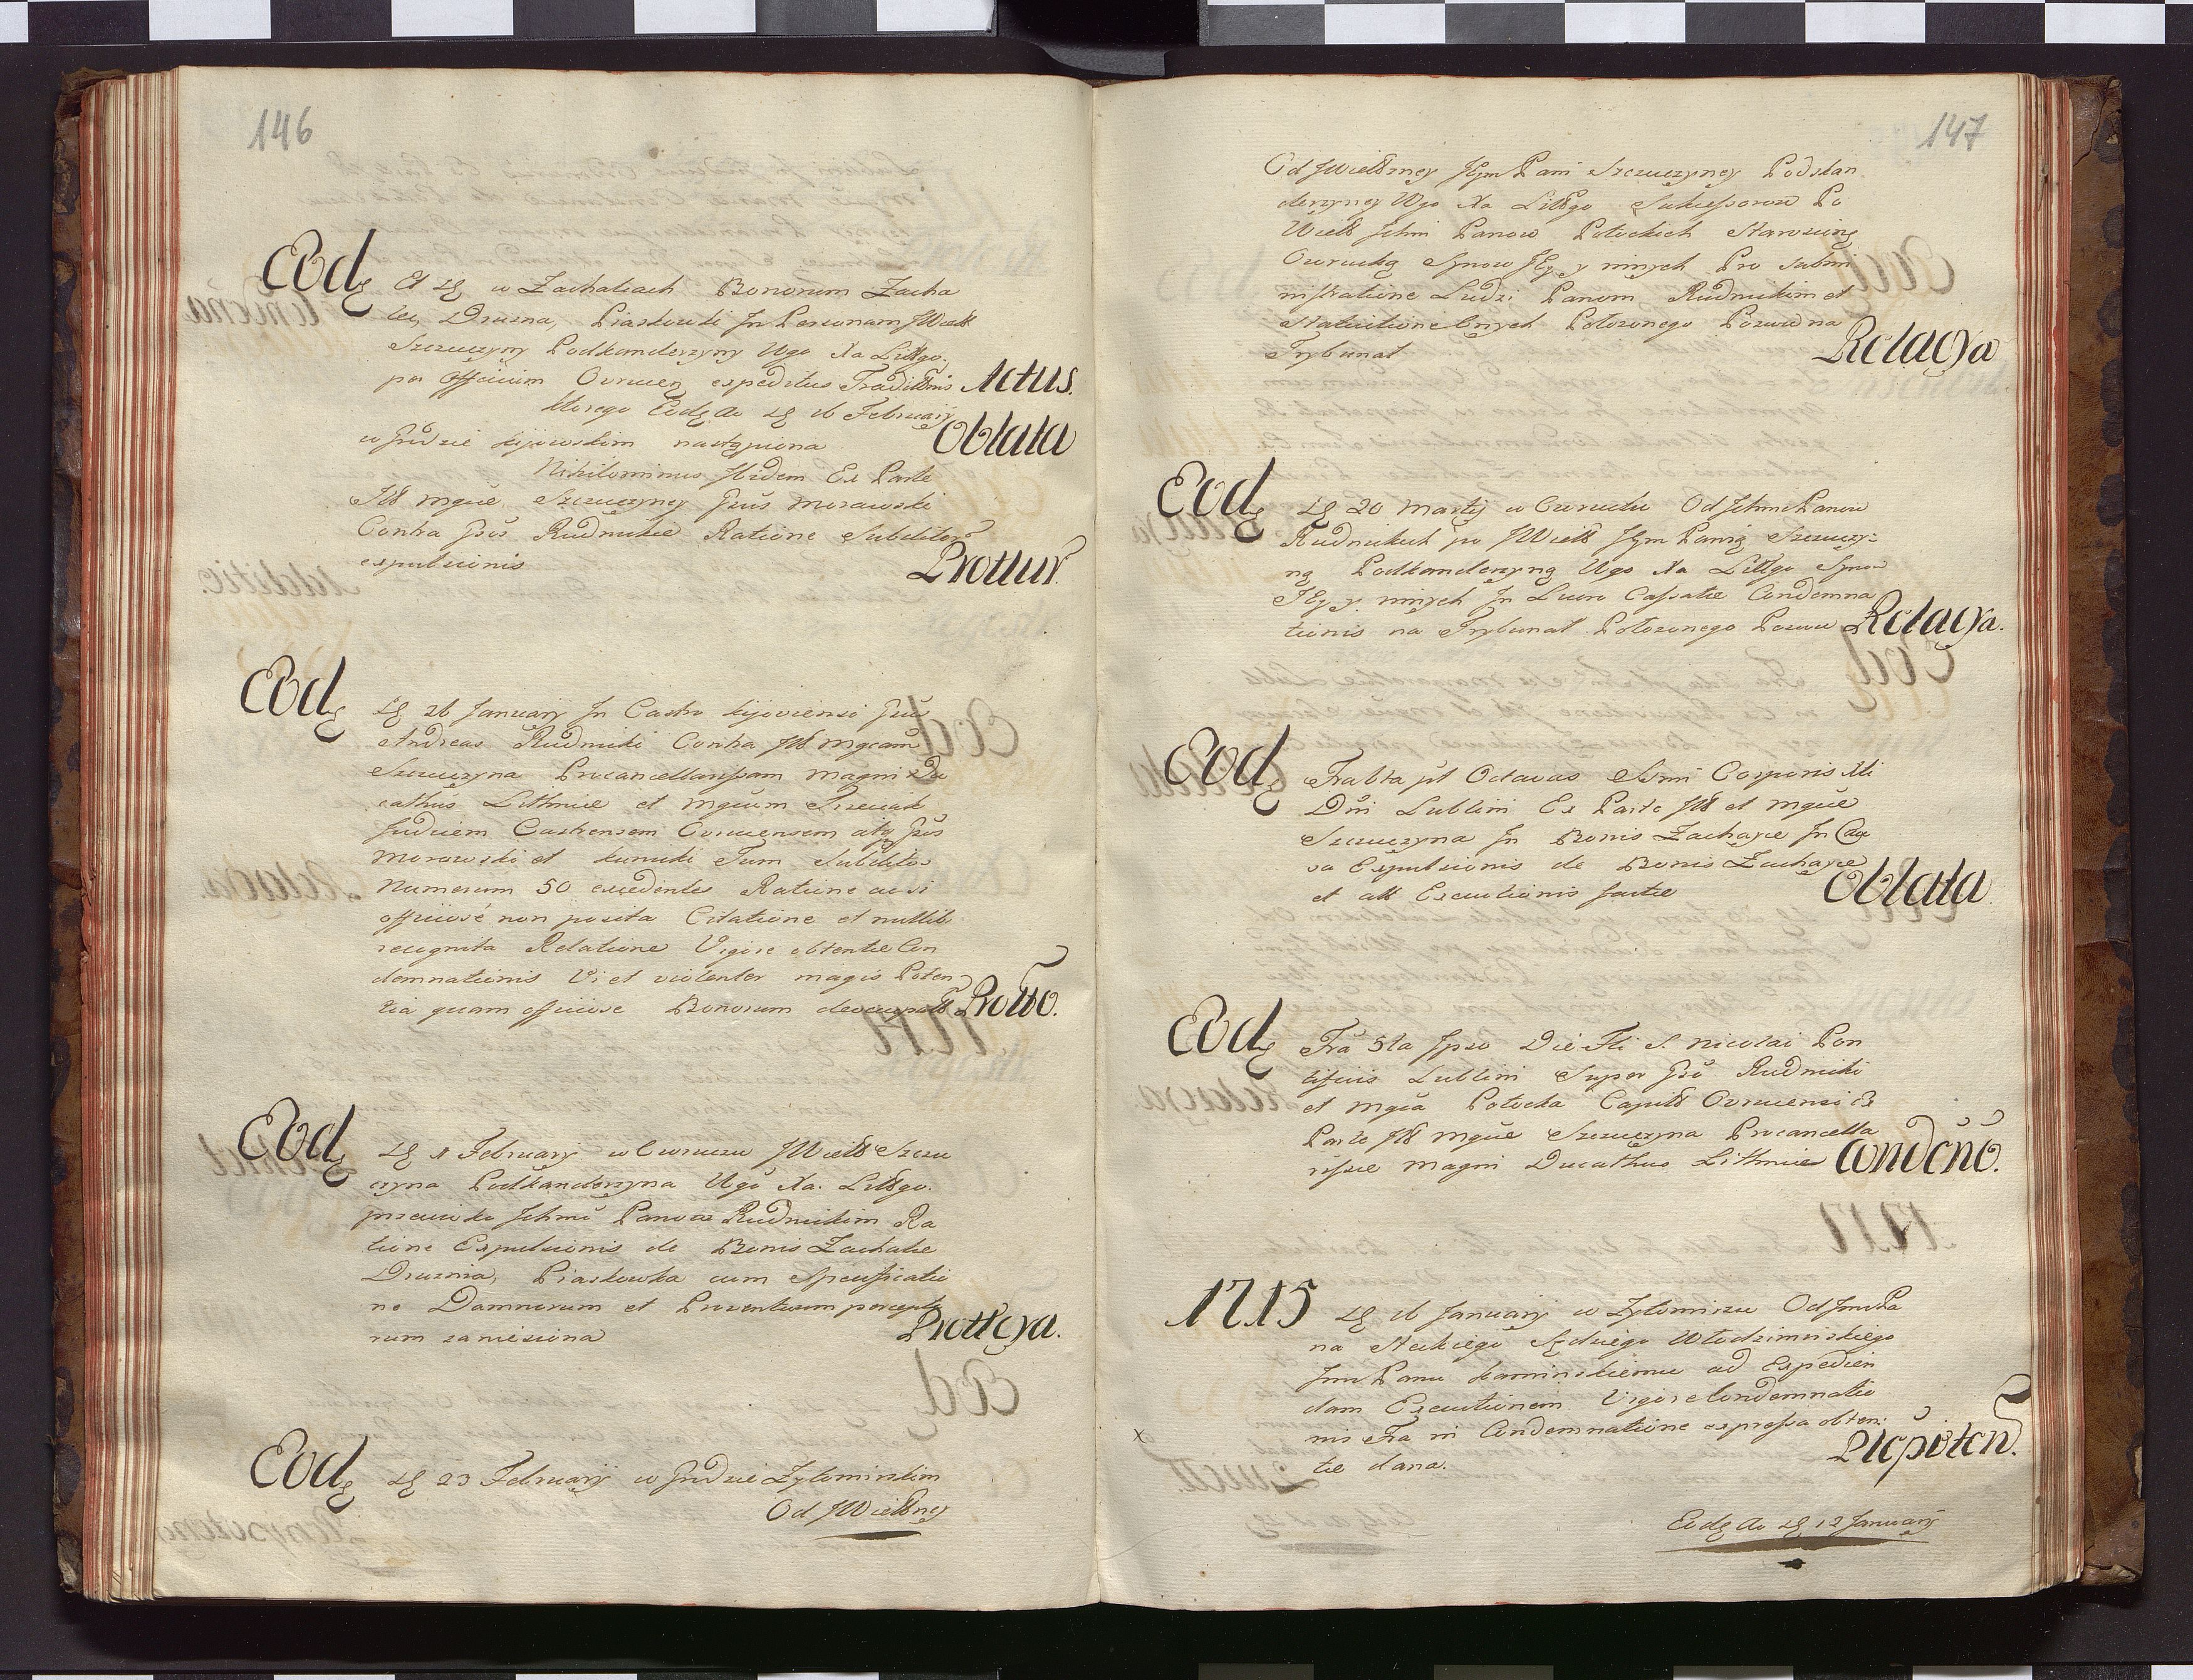 146
Eodę A dę w Zachaliach Bonorum Zacha
lec, Druzna, Piaskowki Jn Personam JWiel
Szczuczyny Podkanclerzyny Wgo Xa Littgo.
per Officium Ovrucen expeditus Traditionis Actus.
ktorego Eodę Ao dę 16 February
w Grodzie kijowskim nastąpiona Oblata
Nihilominus Jbidem Ex Parte
Jll Mgcæ Szczuczyney Gnūs Morawski
Contra Gnōs Rudnickie Ratione Subditor
expulsionis Prottur.
Eodę dę 26 January Jn Castro kijoviensi Gnūs
Andreas Rudnicki Contra Jll Mgcam
Szczuczyna Procancellarissam Magni Du
cathus Lithuæ et Mgcum
Judicem Castrensem Ovrucensem atq Gnōs
Morawski et kunicki Tum Subditos
Numerum 50 excedentes Ratione acsi
officiosé non posita Citatione et nullib
recognita Relatione Vigore obtentæ Con
demnationis Vi et violenter magis Poten
tia quam officiose Bonorum deoccupatt Protto.
Eodę dę 11 February w Owruczu JWiel Szczu
czyna Podkanclerzyna Wgo Xa. Littgo.
przeciwko Jchmc Panom Rudnickim Ra
tione Expulsionis de Bonis Zachalie
Druznia, Piaskowka cum Specificatio
ne Damnorum et Proventuum percepto
rum zaniesiona Prottcya.
Eodę dę 23 February w Grodzie Zytomirskim
Od JWielbney
147
Od JWielbney Jeym Pani Szczuczyney Podskan
clerzyney Wgo Xa Littgo Sukcessorow Po
Wielb Jchm Panow Potockich Starosciną
Owrucką Synow Jey y innych Pro Submi
nistratione Ludzi Panom Rudnickim et
Statuitione Onych Położonego Pozwu na
Trybunał Relacya
Eodę dę 20 Martij w Owruczu Od Jchmc Panow
Rudnickich po JWielb Jeym Panią Szczuczy=
ną Podkanclerzyną Wgo Xa Littgo Synow
Jey y innych Jn Lucro Cassatæ Condemna
tionis na Trybunał Położonego Pozwu Relacya.
Eodę Fra 6ta pt Octavas Ssmi Corporis Xti
Dni Lublini Ex Parte Jll et Mgcæ
Szczuczyna Jn Bonis Zachayce Jn Cau
sa Expulsionis de Bonis Zachayce
et alt Executionis factæ Oblata
Eodę Fra 5ta Jpso Die Fti S. Nicolai Pon
tificis Lublini Super Gnō Rudnicki
et Mgca Potocka Capitt Ovrucensi Ex
Parte Jll Mgcæ Szczuczyna Procancella
rissæ Magni Ducathus Lithuæ Condcño.
1715 dę 16 January w Zytomirzu Od JmcPa
na Steckiego Sędziego Włodzimirskiego
Jmc Panu kaminskiemu ad Expedien
dam Executionem Vigore Condemnatio
nis Fra in Condemnatione expressa obten:
tæ dana. Plepoten.
X
Eodę Ao dę 12 January